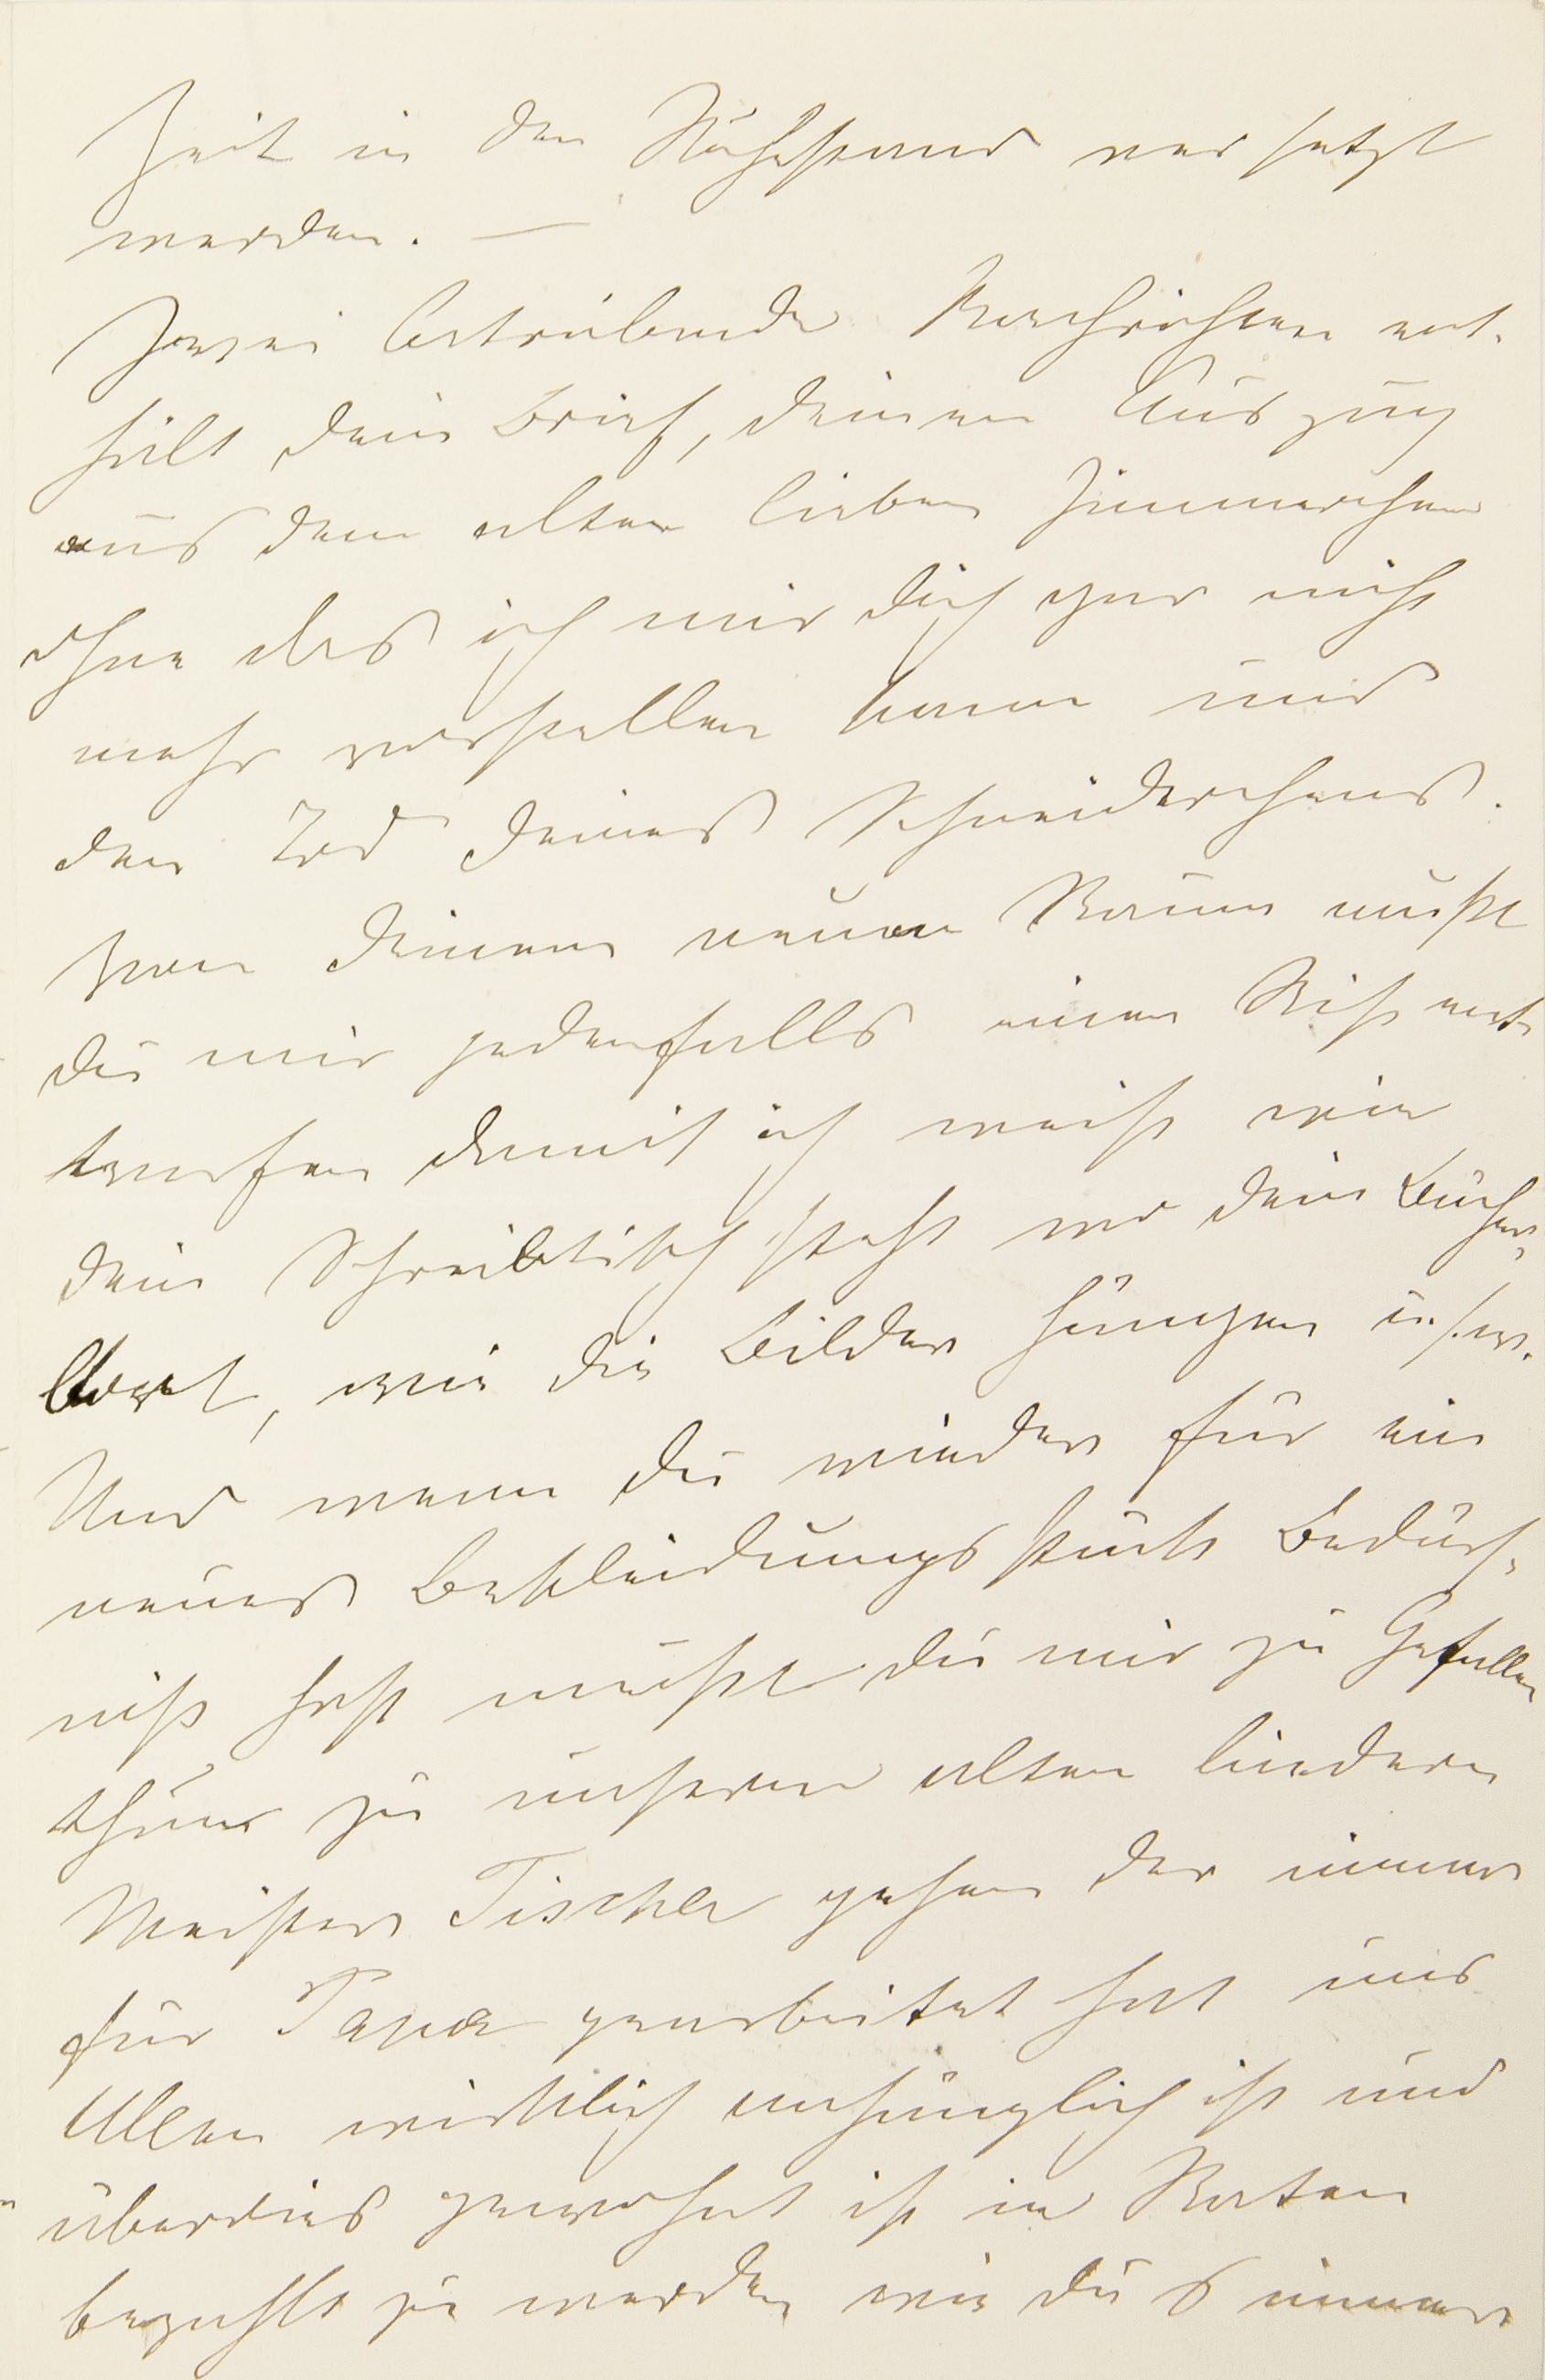 Zeit in den Ruhestand versetzt
werden. —
Zwei betrübende Nachrichten ent-
hält dein Brief, deinen Auszug
aus dem alten lieben Zimmerchen
ohne das ich mir dich gar nicht
mehr vorstellen kann und
den Tod deines Schneiderchens.
Von deinem neuen Raum mußt
du mir jedenfalls einen Riß ent-
werfen damit ich weiß wie
dein Schreibtisch steht wo dein Bücher-
bort, wie die Bilder hängen u. s. w.
Und wenn du wieder für ein
neues Bekleidungsstück Bedürf-
niß hast mußt du mir zu Gefallen
thun zu unserem alten biedern
Meister Tischler gehen der immer
für Papa gearbeitet hat uns
Allen wirklich anhänglich ist und
überdies gewohnt ist in Raten
bezahlt zu werden wie du's immer